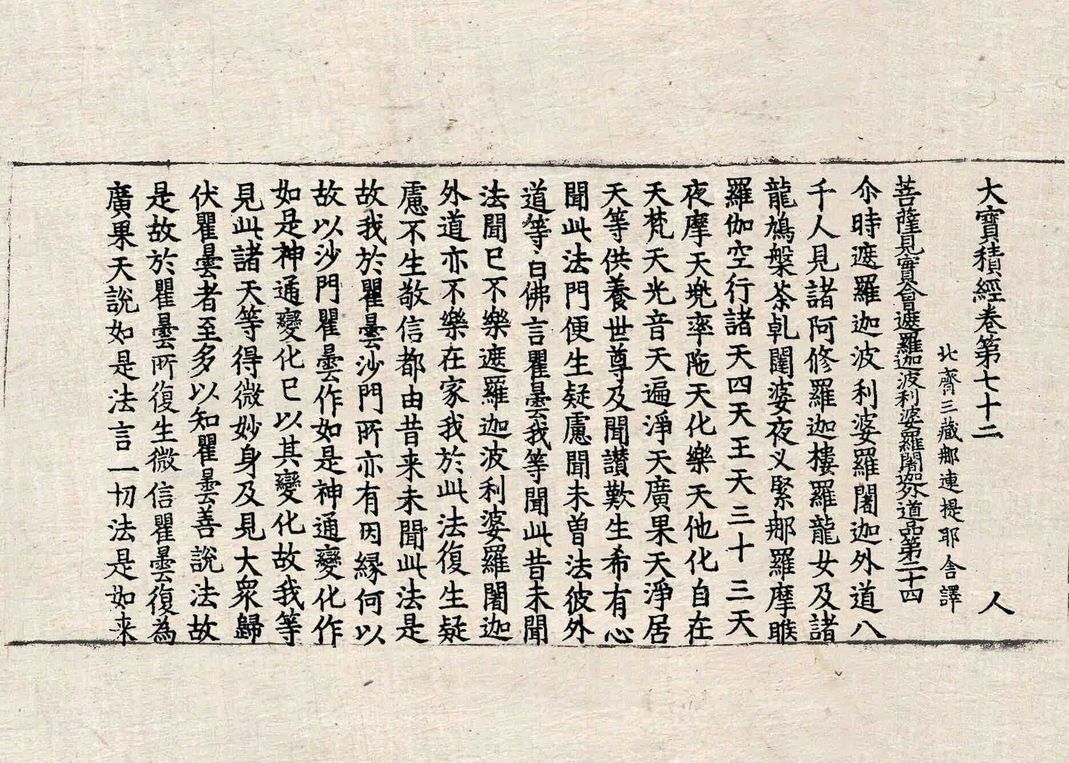 大寶積經卷第七十二 人
北齊三藏那連提耶舍譯
菩薩見實會遮羅迦波利婆羅闍迦外道品第二十四
尒時遮羅迦波利婆羅闍迦外道八
千人見諸阿修羅迦樓羅龍女及諸
龍鳩槃荼乹闥婆夜叉緊那羅摩睺
羅伽空行諸天四天王天三十三天
夜摩天兜率陁天化樂天他化自在
天梵天光音天遍淨天廣果天淨居
天等供養世尊及聞讚歎生希有心
聞此法門便生疑慮聞未曾法彼外
道等白佛言瞿曇我等聞此昔未聞
法聞已不樂遮羅迦波利婆羅闍迦
外道亦不樂在家我於此法復生疑
慮不生敬信都由昔来未聞此法是
故我於瞿曇沙門所亦有因縁何以
故以沙門瞿曇作如是神通變化作
如是神通變化已以其變化故我等
見此諸天等得微妙身及見大衆歸
伏瞿曇者至多以知瞿曇善説法故
是故於瞿曇所復生微信瞿曇復為
廣果天説如是法言一切法是如来